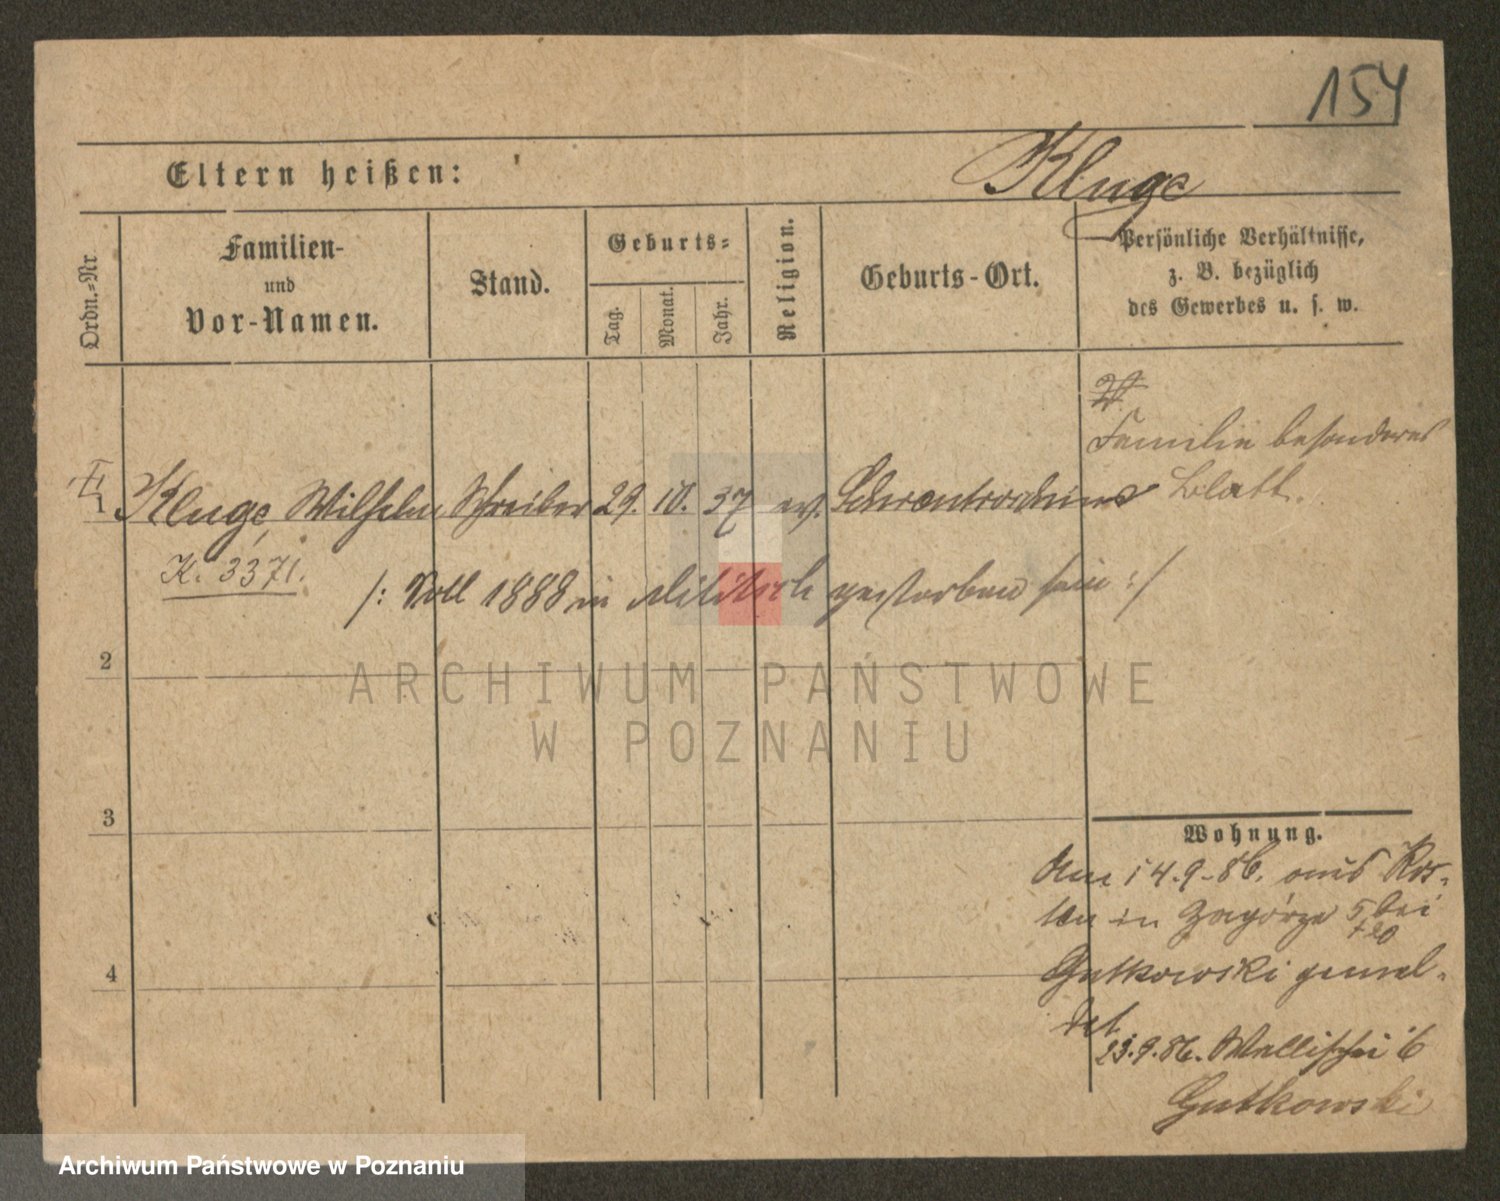 154
Eltern heißen:
Kluge
Ordn.-Nr.
Familien-
und
Vor-Namen.
Stand.
Geburts-
Tag.
Monat.
Jahr.
Religion.
Geburts-Ort.
Persönliche Verhältnisse,
z. B. bezüglich
des Gewerbes u. s. w.
Familie besonderes
Blatt.
1 Kluge, Wilhelm Schreiber 29. 10. 37 ev.
K. 3371.
/: Soll 1888 in Militsch gestorben sein :/
2
3
4
ARCHIWUM PAŃSTWOWE
W POZNANIU
Wohnung.
Am 14.9.86. aus Kos-
ten in Zagórze 5 bei
Gutkowski gemel-
det
23.9.86. Wallischei 6
Gutkowski
Archiwum Państwowe w Poznaniu